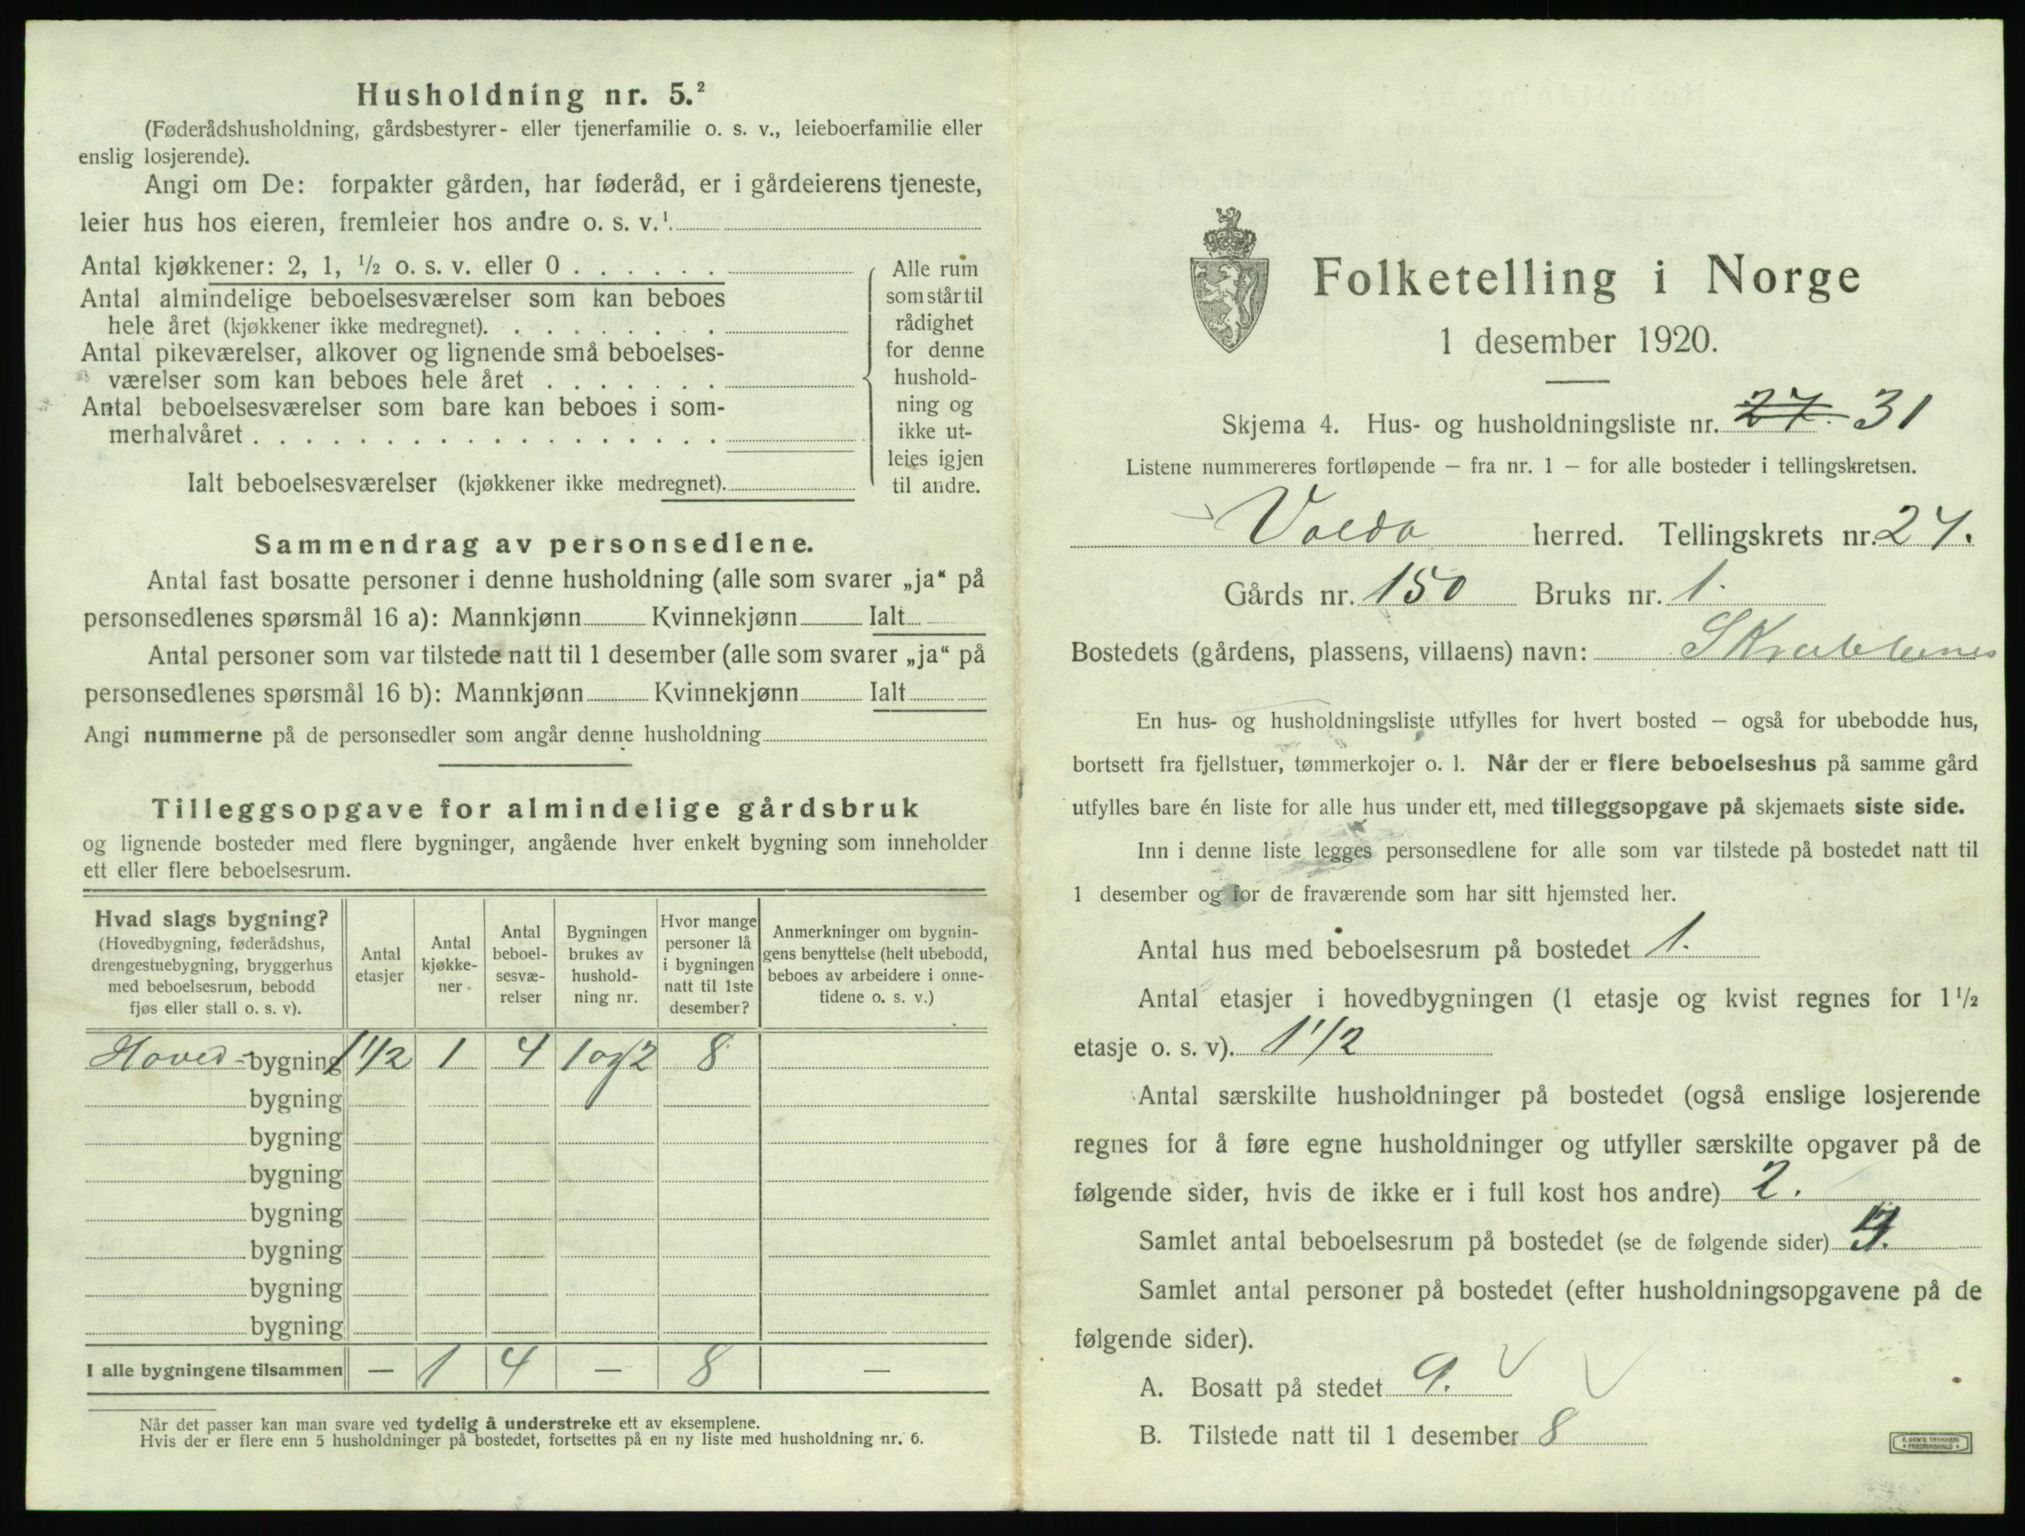 Husholdning nr. 5.²
(Føderådshusholdning, gårdsbestyrer- eller tjenerfamilie o. s. v., leieboerfamilie eller
enslig losjerende).
Angi om De: forpakter gården, har føderåd, er i gårdeierens tjeneste,
leier hus hos eieren, fremleier hos andre o. s. v.¹
Antal kjøkkener: 2, 1, ½ o. s. v. eller 0 . . . . . .
Antal almindelige beboelsesværelser som kan beboes
hele året (kjøkkener ikke medregnet). . . . . . . . .
Antal pikeværelser, alkover og lignende små beboelses-
værelser som kan beboes hele året . . . . . . .
Antal beboelsesværelser som bare kan beboes i som-
merhalvåret . . . . . . . . . . . . . . . . . .
Ialt beboelsesværelser (kjøkkener ikke medregnet).
Alle rum
som står til
rådighet
for denne
hushold-
ning og
ikke ut-
leies igjen
til andre.
Sammendrag av personsedlene.
Antal fast bosatte personer i denne husholdning (alle som svarer „ja“ på
personsedlenes spørsmål 16 a): Mannkjønn Kvinnekjønn Ialt
Antal personer som var tilstede natt til 1 desember (alle som svarer „ja“ på
personsedlenes spørsmål 16 b): Mannkjønn Kvinnekjønn Ialt
Angi nummerne på de personsedler som angår denne husholdning
Tilleggsopgave for almindelige gårdsbruk
og lignende bosteder med flere bygninger, angående hver enkelt bygning som inneholder
ett eller flere beboelsesrum.
Hvad slags bygning?
(Hovedbygning, føderådshus,
drengestuebygning, bryggerhus
med beboelsesrum, bebodd
fjøs eller stall o. s. v).
Antal
etasjer
Antal
kjøkke-
ner
Antal
beboel-
sesvæ-
relser
Bygningen
brukes av
hushold-
ning nr.
Hvor mange
personer lå
i bygningen
natt til 1ste
desember?
Anmerkninger om bygnin-
gens benyttelse (helt ubebodd,
beboes av arbeidere i onne-
tidene o. s. v.)
Hoved-bygning 1 1/2 1 4 1 og 2 8
bygning
bygning
bygning
bygning
bygning
bygning
bygning
I alle bygningene tilsammen — 1 4 — 8 —
Når det passer kan man svare ved tydelig å understreke ett av eksemplene.
Hvis der er flere enn 5 husholdninger på bostedet, fortsettes på en ny liste med husholdning nr. 6.
Folketelling i Norge
1 desember 1920.
Skjema 4. Hus- og husholdningsliste nr. 27. 31
Listene nummereres fortløpende – fra nr. 1 – for alle bosteder i tellingskretsen.
Volda herred. Tellingskrets nr. 24.
Gårds nr. 150 Bruks nr. 1.
Bostedets (gårdens, plassens, villaens) navn:
En hus- og husholdningsliste utfylles for hvert bosted – også for ubebodde hus,
bortsett fra fjellstuer, tømmerkojer o. l. Når der er flere beboelseshus på samme gård
utfylles bare én liste for alle hus under ett, med tilleggsopgave på skjemaets siste side.
Inn i denne liste legges personsedlene for alle som var tilstede på bostedet natt til
1 desember og for de fraværende som har sitt hjemsted her.
Antal hus med beboelsesrum på bostedet 1.
Antal etasjer i hovedbygningen (1 etasje og kvist regnes for 1 ½
etasje o. s. v). 1 1/2
Antal særskilte husholdninger på bostedet (også enslige losjerende
regnes for å føre egne husholdninger og utfyller særskilte opgaver på de
følgende sider, hvis de ikke er i full kost hos andre) 2.
Samlet antal beboelsesrum på bostedet (se de følgende sider)
Samlet antal personer på bostedet (efter husholdningsopgavene på de
følgende sider).
A. Bosatt på stedet 9.
B. Tilstede natt til 1 desember 8